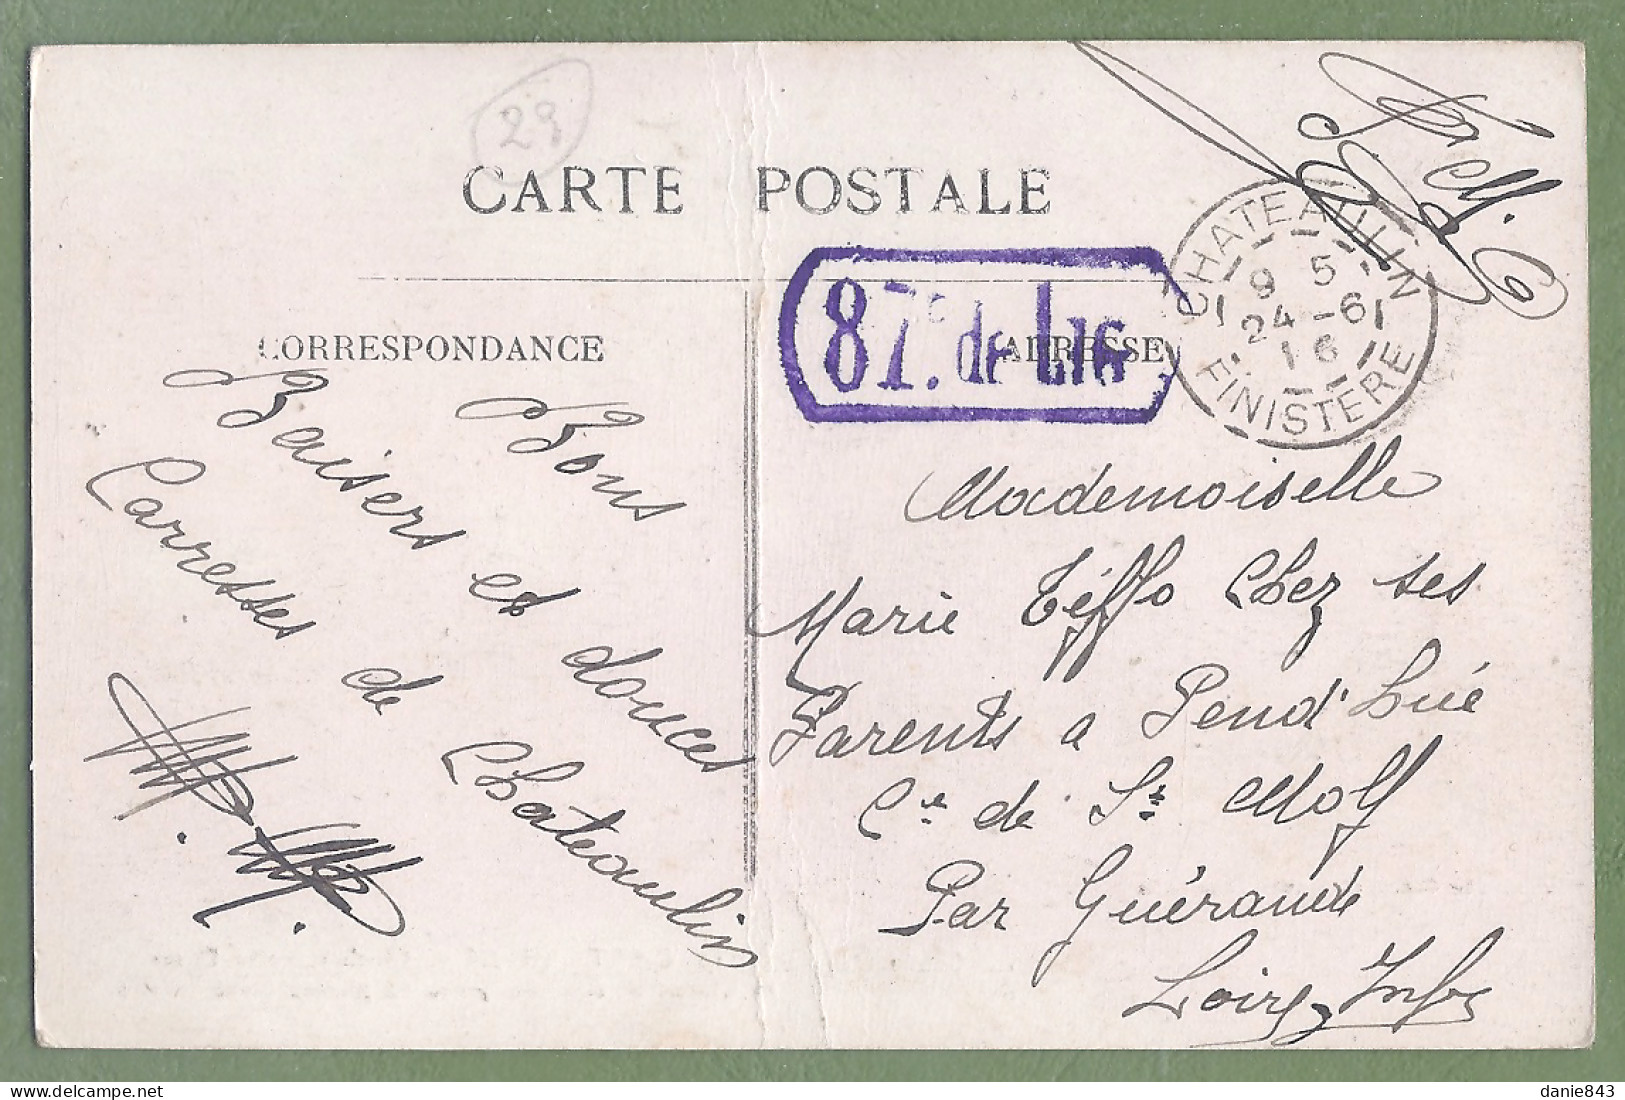 29
CARTE POSTALE
F. M.
CHATEAULIN
9 5
24 - 6
16
FINISTERE
87e de Lig
CORRESPONDANCE
ADRESSE
Bons
Baisers et douces
Carresses de Chateaulin
Mademoiselle
Marie Téffo Chez ses
Parents a Pend'Lué
Cne de St Molf
Par Guérande
Loire Infre
danie843